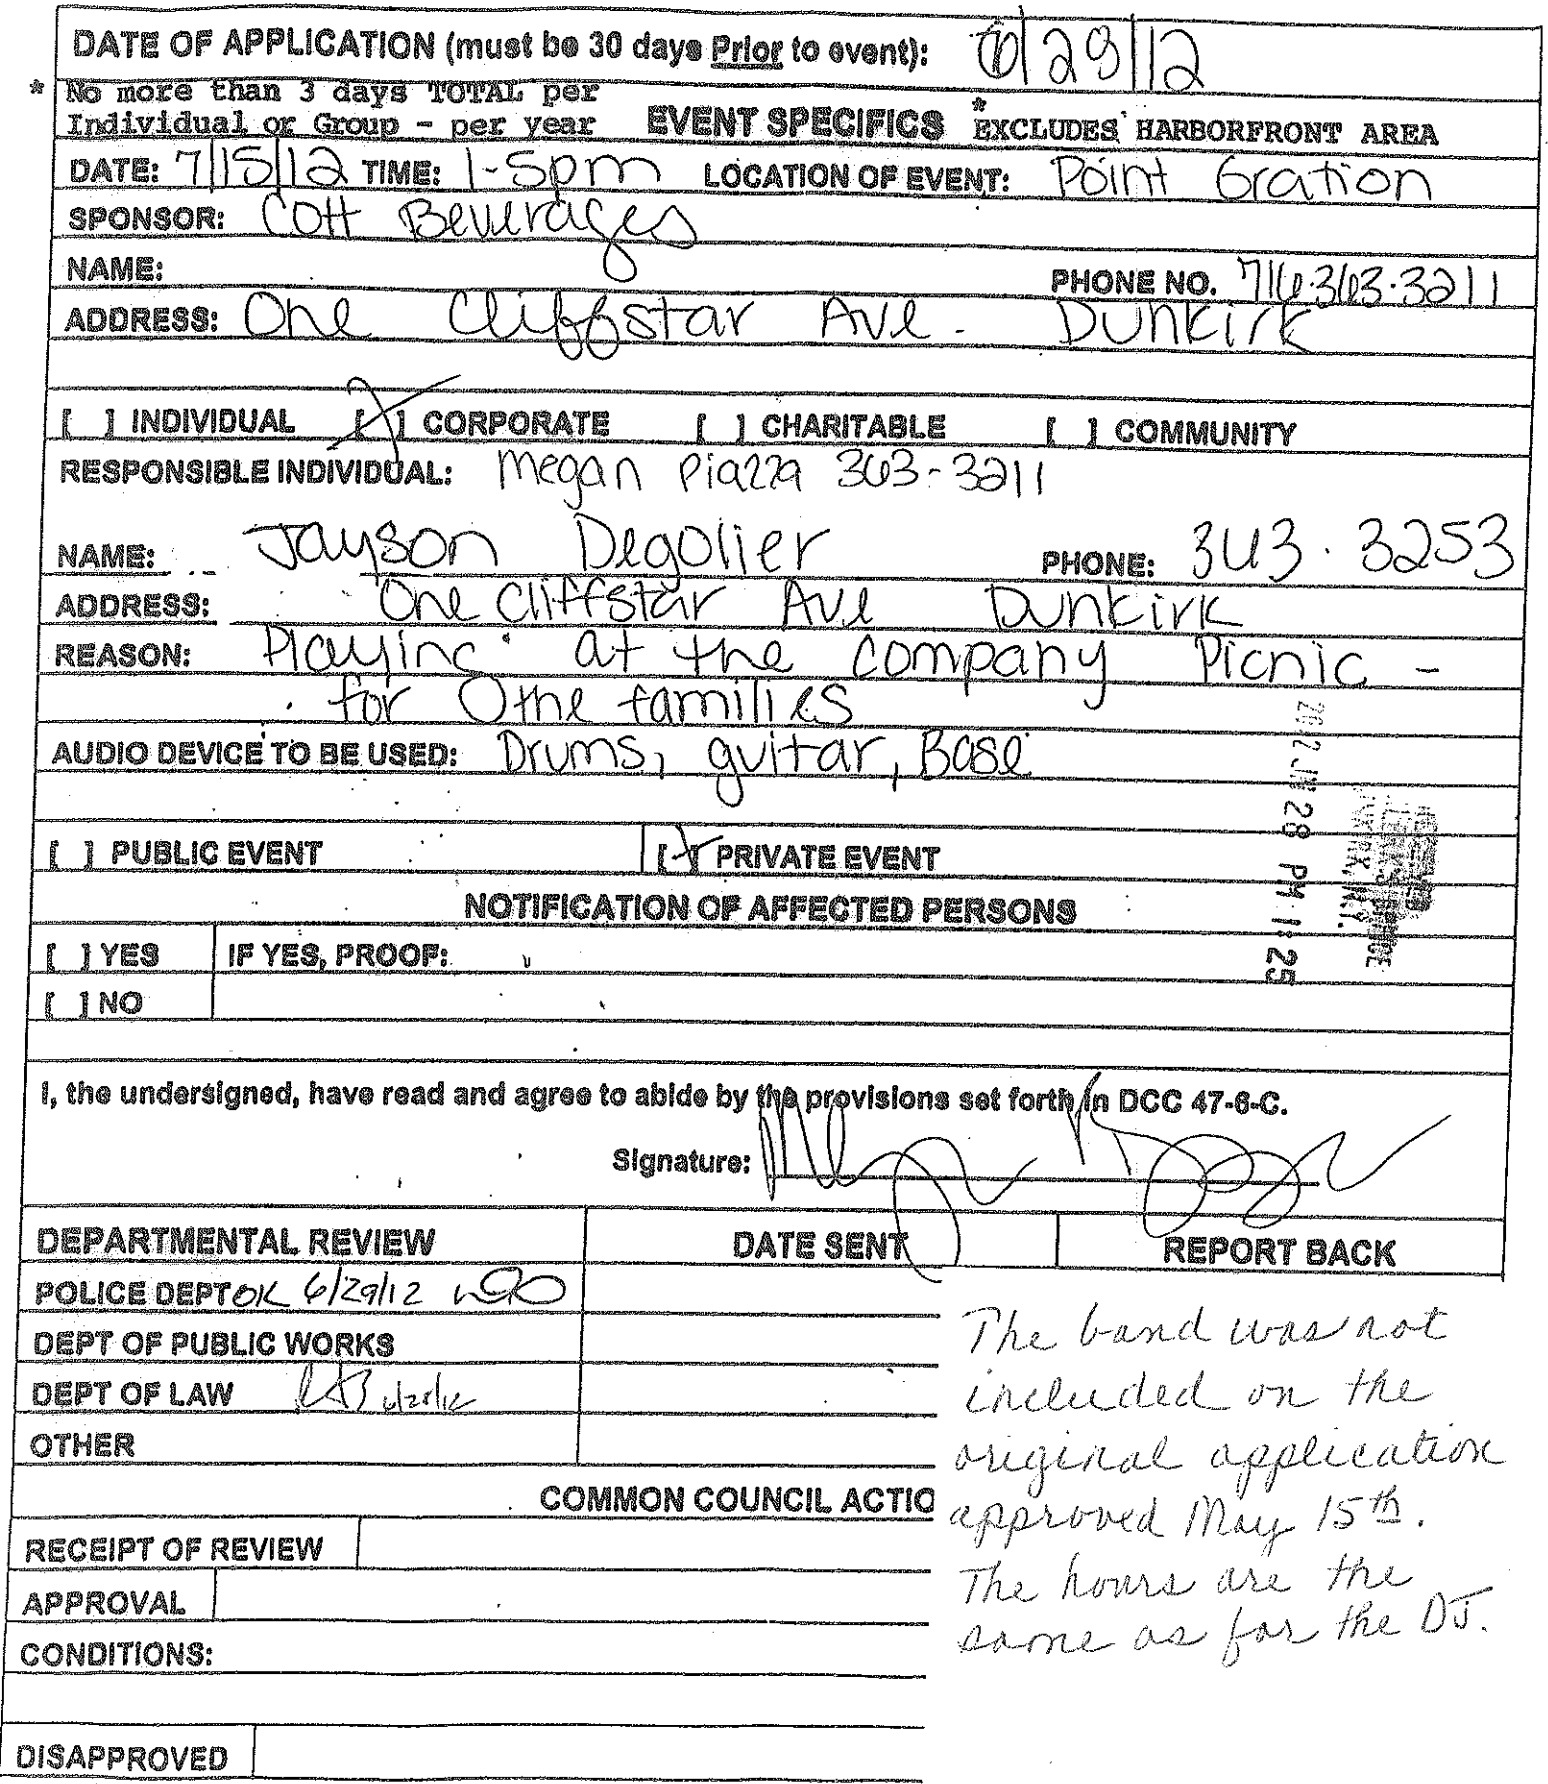 DATE OF APPLICATION (must be 30 days Prior to event): 6/28/12
* No more than 3 days TOTAL per
Individual or Group - per year EVENT SPECIFICS * EXCLUDES HARBORFRONT AREA
DATE: 7/15/12 TIME: 1-5pm LOCATION OF EVENT: Point Gration
SPONSOR: Cott Beverages
NAME: PHONE NO. 716.363.3211
ADDRESS: One Cliffstar Ave. Dunkirk
[ ] INDIVIDUAL [X] CORPORATE [ ] CHARITABLE [ ] COMMUNITY
RESPONSIBLE INDIVIDUAL: Megan Piazza 363-3211
NAME: Jayson Degolier PHONE: 363.3253
ADDRESS: One Cliffstar Ave Dunkirk
REASON: Playing at the company Picnic -
for the families
AUDIO DEVICE TO BE USED: Drums, guitar, Base
[ ] PUBLIC EVENT [X] PRIVATE EVENT
2012 JUN 28 PM 1:25
NOTIFICATION OF AFFECTED PERSONS
[ ] YES IF YES, PROOF:
[ ] NO
I, the undersigned, have read and agree to abide by the provisions set forth in DCC 47-6-C.
Signature:
DEPARTMENTAL REVIEW DATE SENT REPORT BACK
POLICE DEPT OK 6/29/12
DEPT OF PUBLIC WORKS
DEPT OF LAW 6/28/12
OTHER
COMMON COUNCIL ACTIO
RECEIPT OF REVIEW
APPROVAL
CONDITIONS:
DISAPPROVED
The band was not
included on the
original application
approved May 15th.
The hours are the
same as for the DJ.